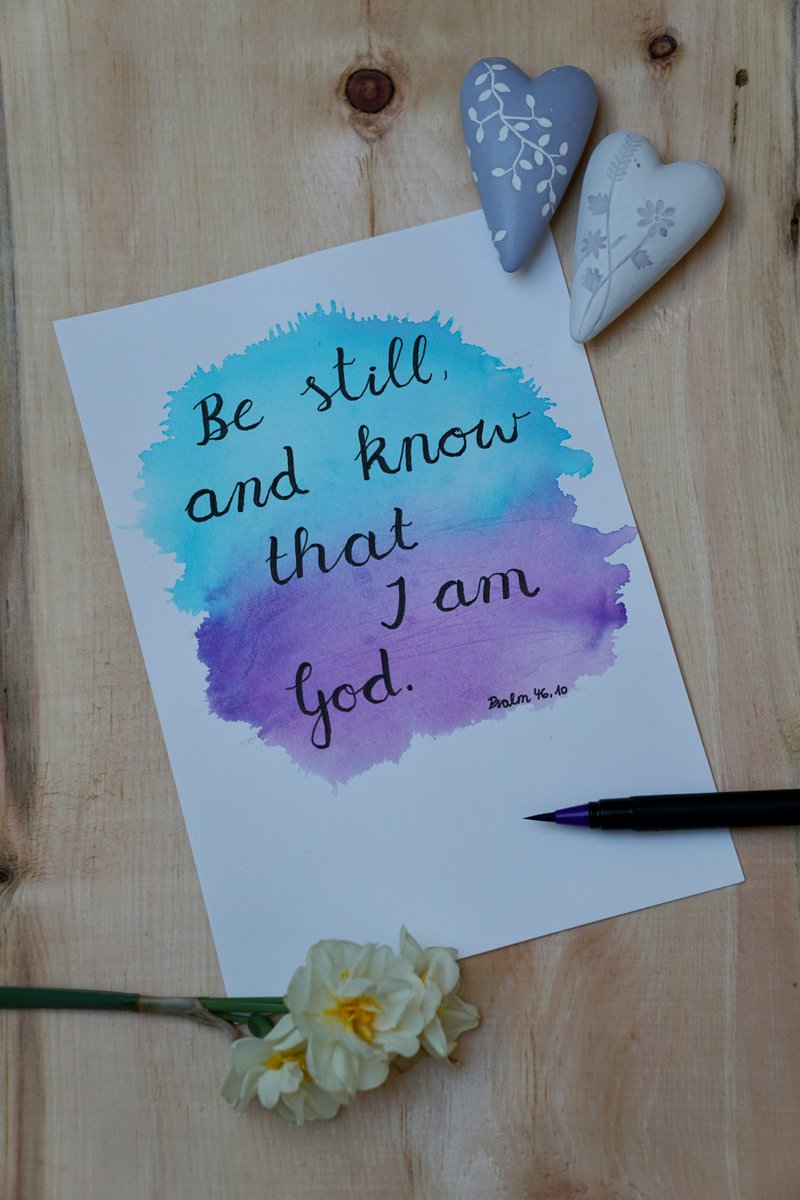 Be still,
and know
that
I am
God.
Psalm 46,10